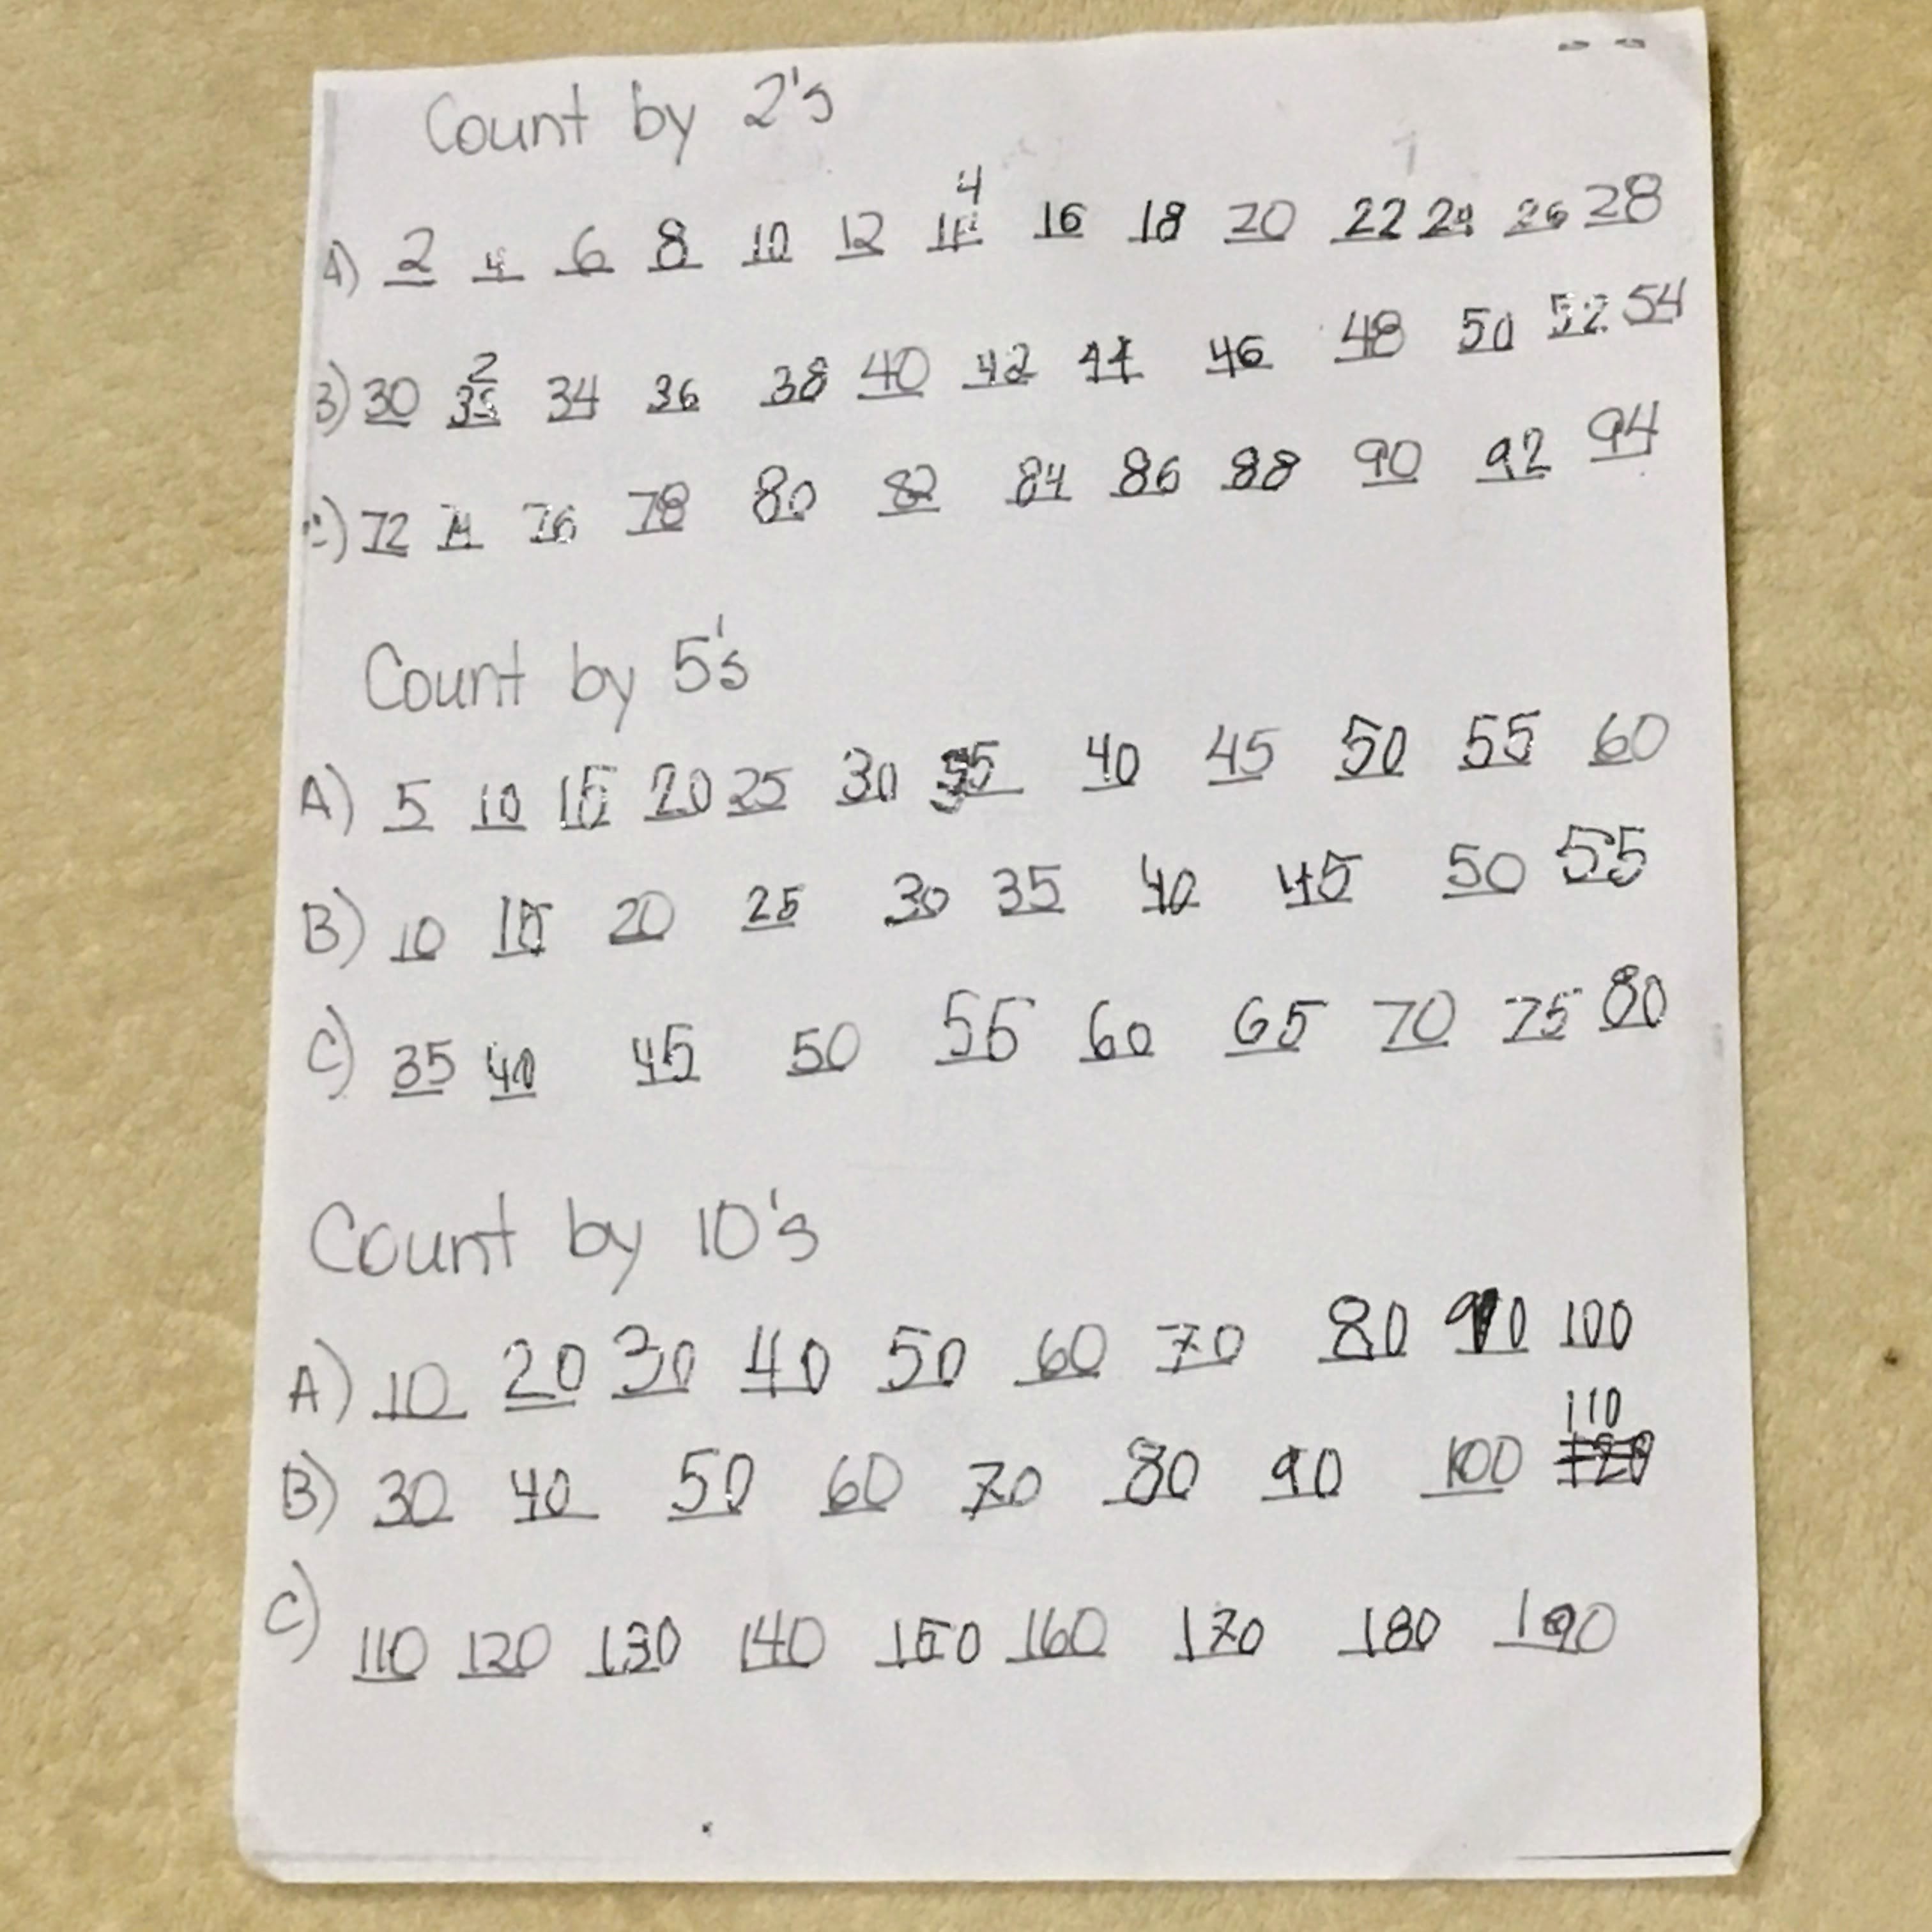 Count by 2's
A) 2 4 6 8 10 12 14 16 18 20 22 24 26 28
B) 30 32 34 36 38 40 42 44 46 48 50 52 54
C) 72 74 76 78 80 82 84 86 88 90 92 94
Count by 5's
A) 5 10 15 20 25 30 35 40 45 50 55 60
B) 10 15 20 25 30 35 40 45 50 55
C) 35 40 45 50 55 60 65 70 75 80
Count by 10's
A) 10 20 30 40 50 60 70 80 90 100
B) 30 40 50 60 70 80 90 100 110
C) 110 120 130 140 150 160 170 180 190